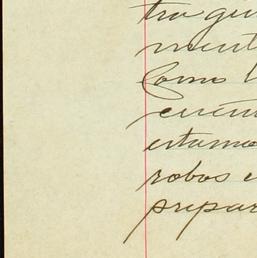 tra gu
ment
Como l
cuen
estamo
robos e
prepar